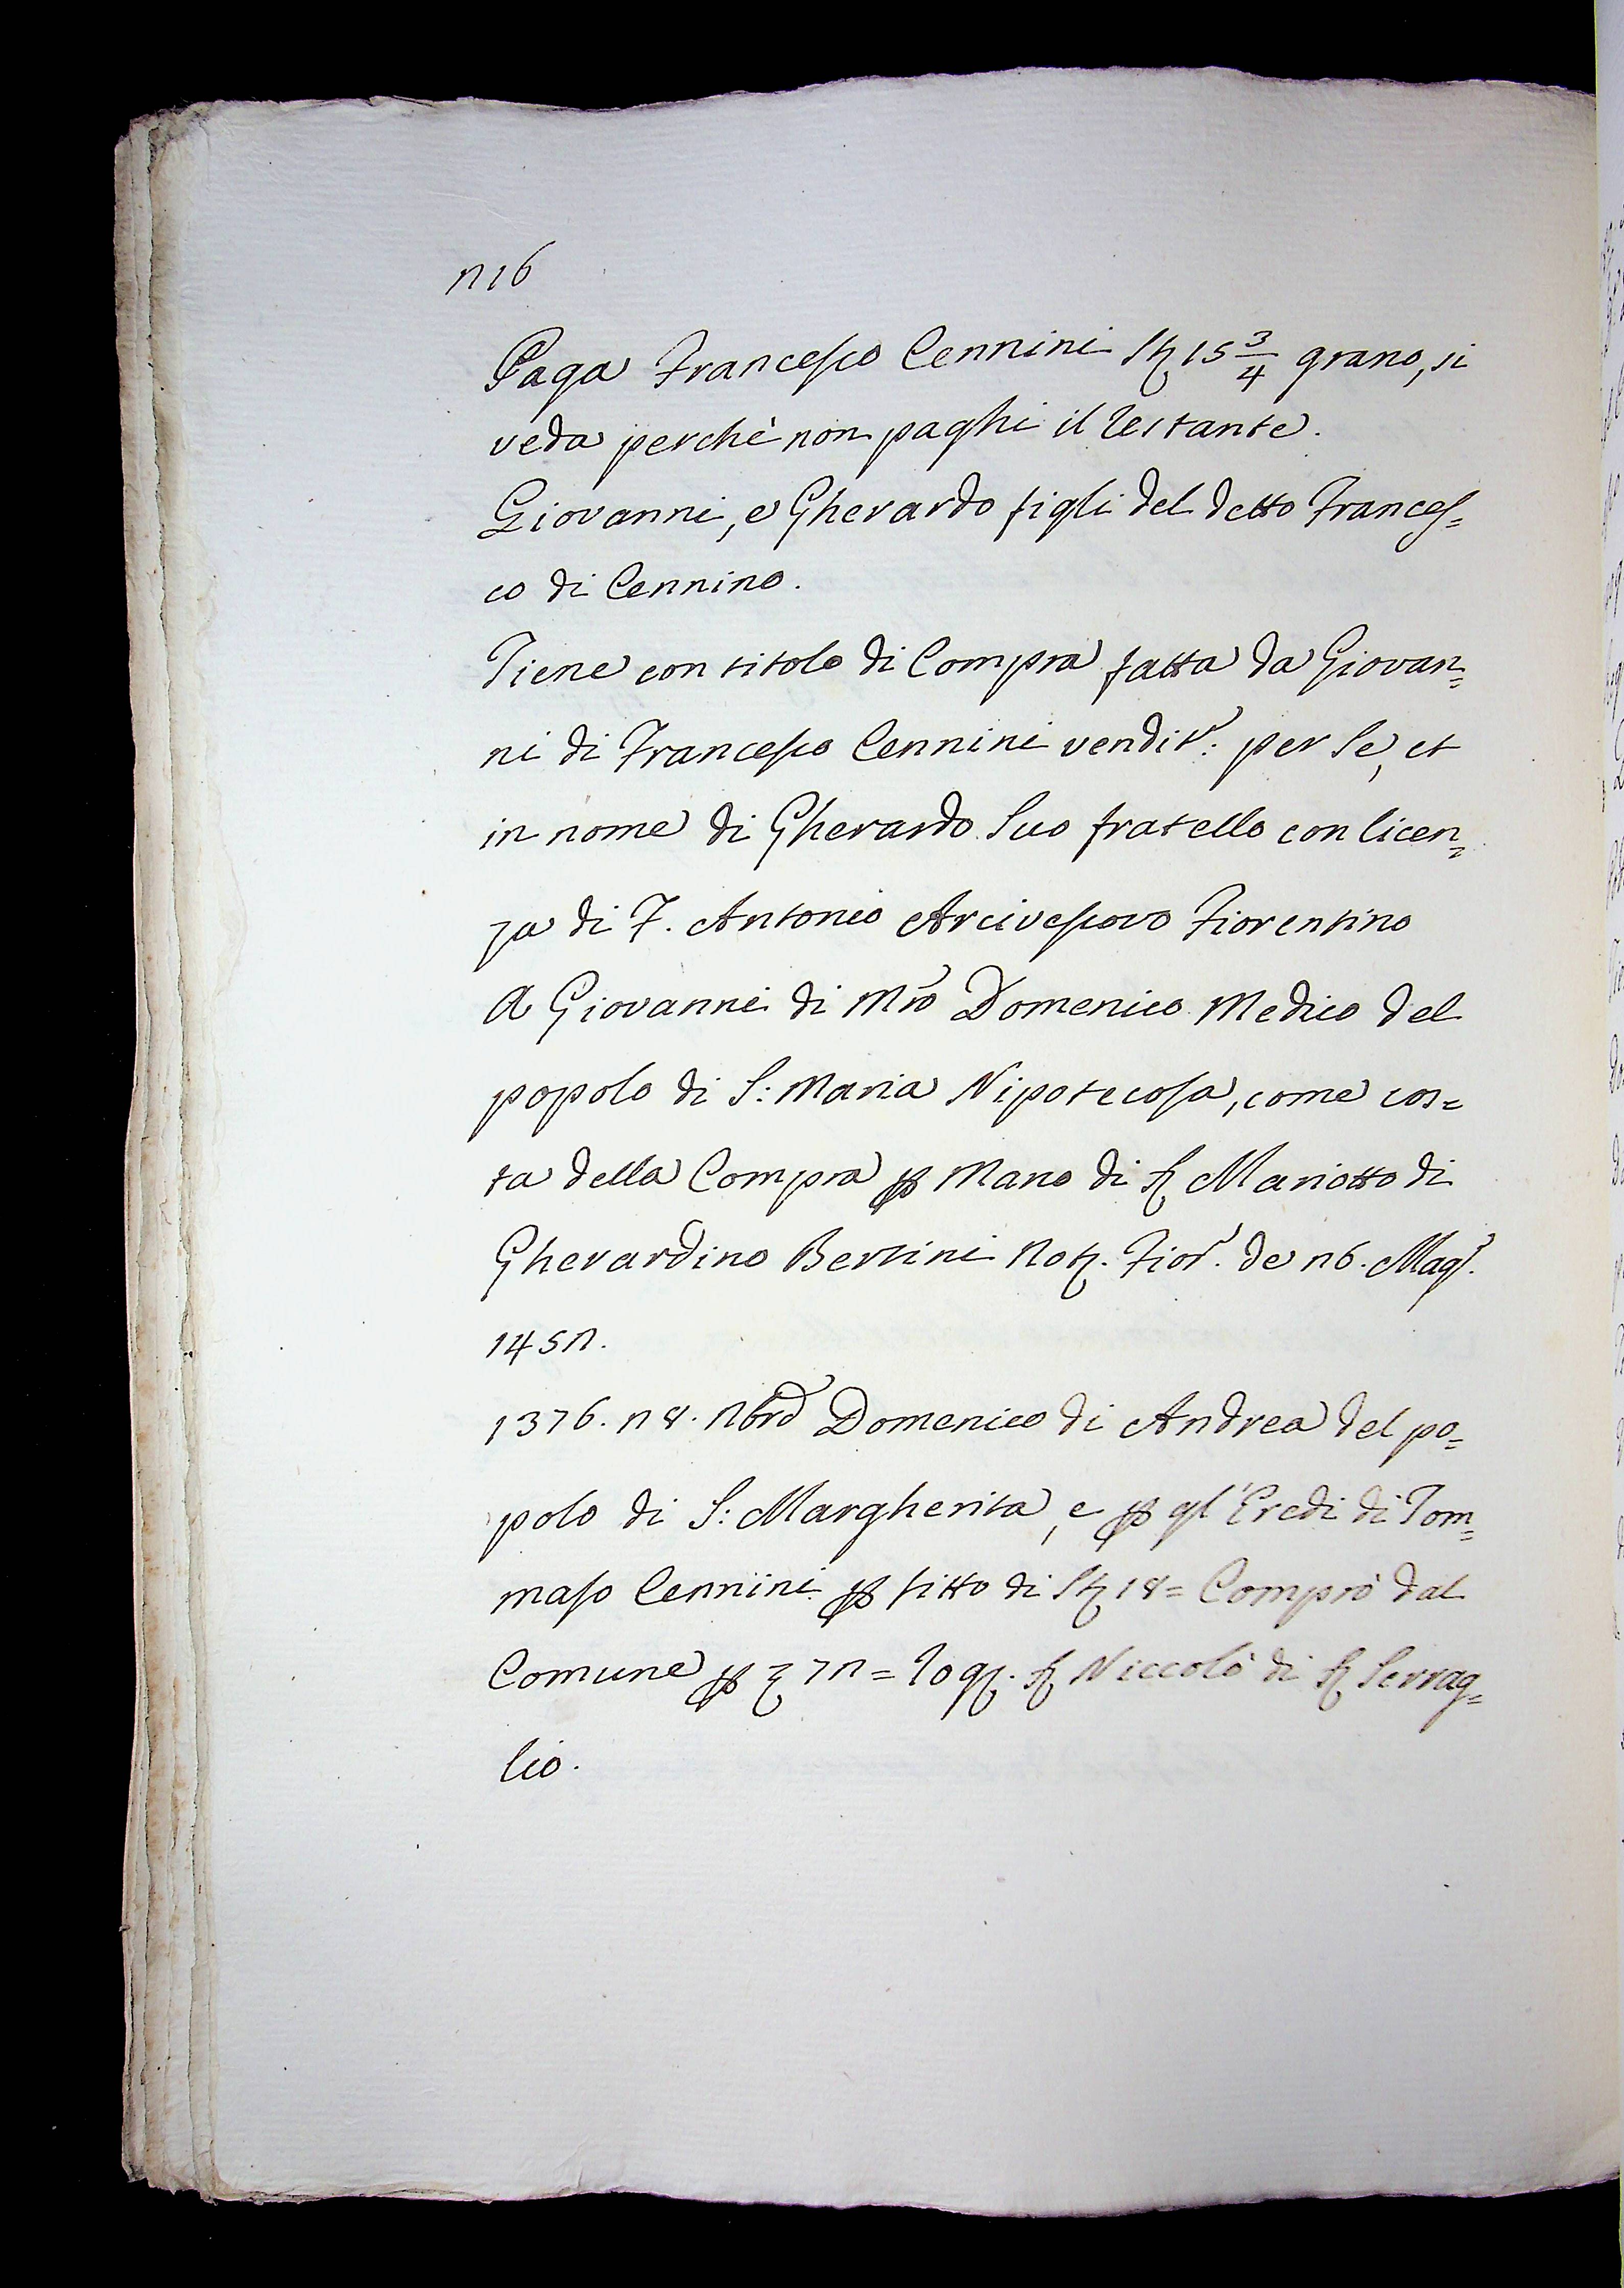 216
Paga Francesco Cennini St 15 3/4 grano, si
veda perchè non paghi il restante.
Giovanni, e Gherardo figli del detto Frances=
co di Cennino.
Tiene con titolo di Compra fatta da Giovan=
ni di Francesco Cennini vendit.r: per se, et
in nome di Gherardo suo fratello con licen=
za di F. Antonio Arcivescovo Fiorentino
a Giovanni di Mro Domenico Medico del
popolo di S: Maria Nipotecosa, come cos=
ta della Compra p Mano di S Mariotto di
Gherardino Bertini Not. Fior. de 26. Mag.
1452.
1376. 28. Nbre Domenico di Andrea del po=
polo di S: Margherita, e p gl' Eredi di Tom=
maso Cennini p fitto di St 18= Comprò dal
Comune p 72= Rog. S Niccolò di S Serrag=
lio.